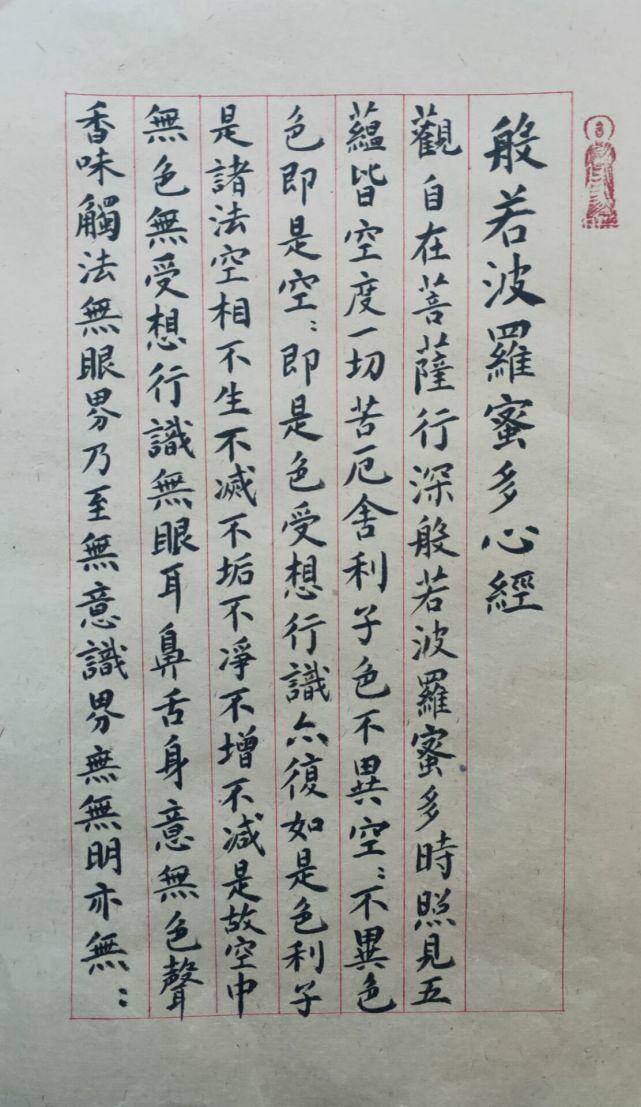 般若波羅蜜多心經
觀自在菩薩行深般若波羅蜜多時照見五
蘊皆空度一切苦厄舍利子色不異空：不異色
色即是空：即是色受想行識亦復如是色利子
是諸法空相不生不滅不垢不淨不增不減是故空中
無色無受想行識無眼耳鼻舌身意無色聲
香味觸法無眼界乃至無意識界無無明亦無：